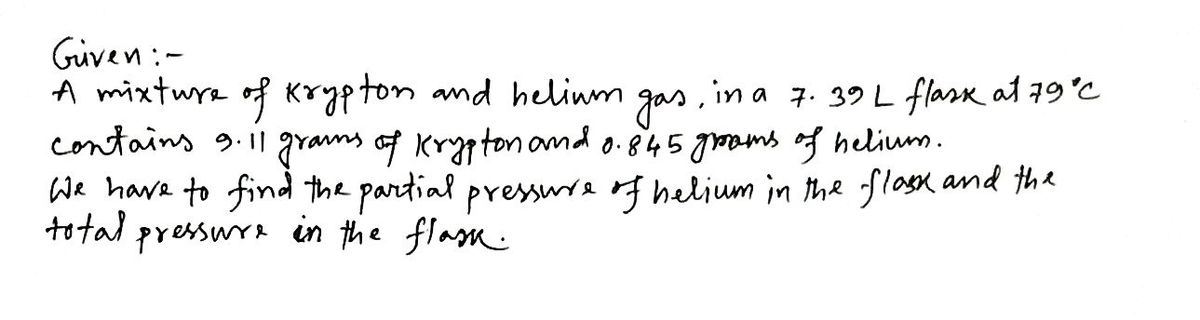 Given :-
A mixture of Krypton and helium gas, in a 7.39 L flask at 79°C
contains 9.11 grams of Krypton and 0.845 grams of helium.
We have to find the partial pressure of helium in the flask and the
total pressure in the flask.